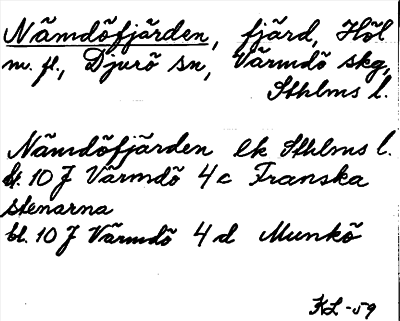 Nämdöfjärden, fjärd, Höl
m. fl., Djurö sn, Värmdö skg,
Sthlms l.
Nämdöfjärden Ek Sthlms l.
bl. 10 J Värmdö 4 c Franska
stenarna
bl. 10 J Värmdö 4 d Munkö
KL -59